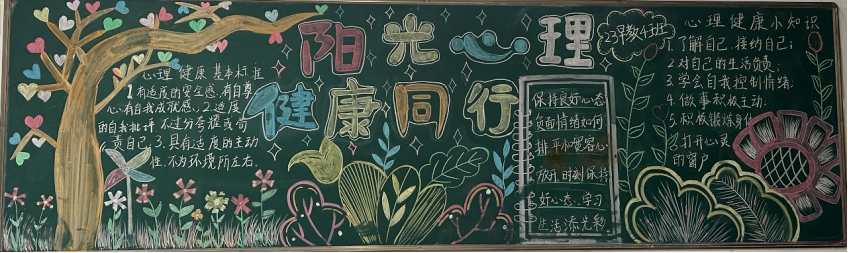 阳光心理
健康同行
23早教4班
心理健康基本标准
1.有适度的安全感，有自尊
心有自我成就感；2.适度
的自我批评不过分夸耀或苛
责自己；3.具有适度的主动
性，不为环境所左右。
保持良好心态
负面情绪如何
排平和宽容心
放开时刻保持
好心态，学习
生活添光彩
心理健康小知识
1.了解自己，接纳自己；
2.对自己的生活负责；
3.学会自我控制情绪；
4.做事积极主动；
5.积极锻炼身体
6.打开心灵
的窗户